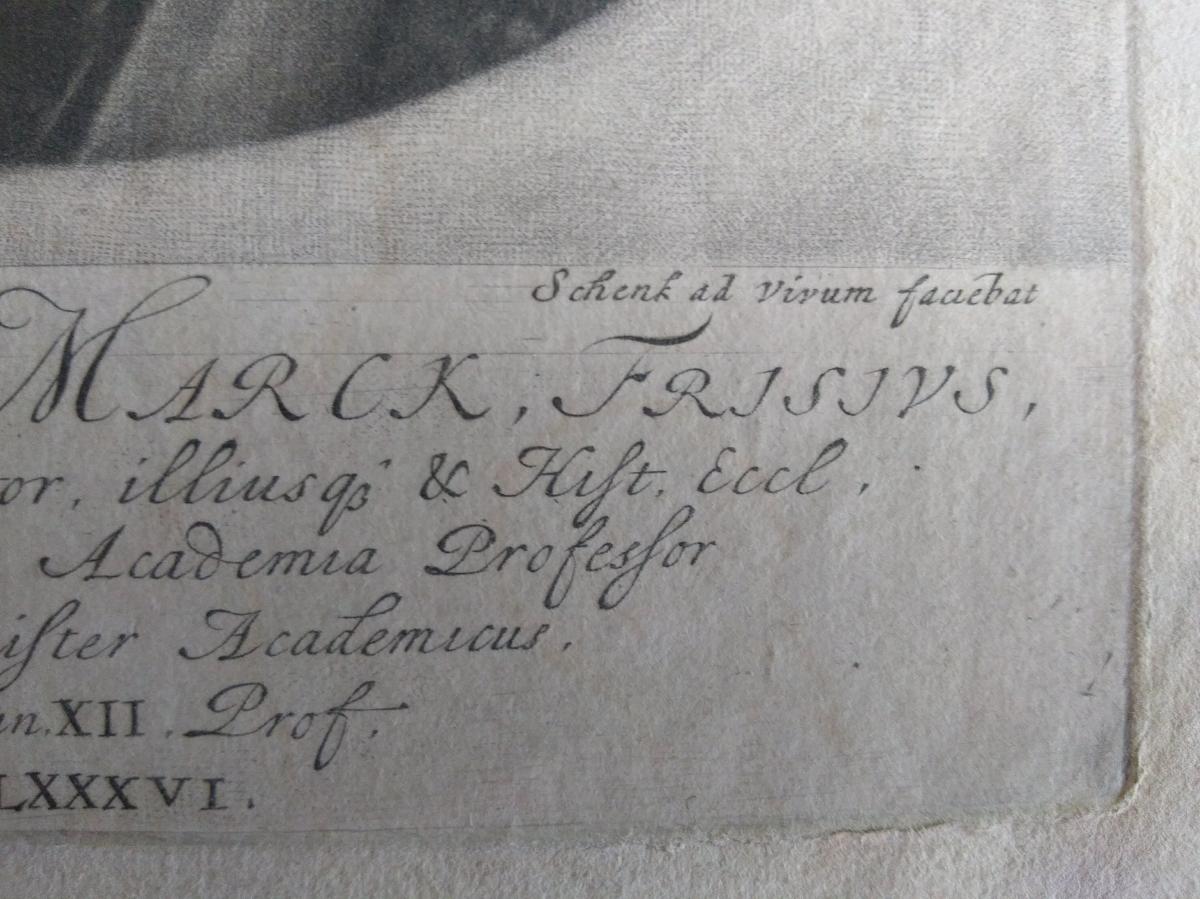 Schenk ad vivum faciebat
MARCK, FRISIVS,
or, illiusq; & Hiſt. Eccl.
Academia Profeſſor
iſter Academicus.
an. XII. Prof.
LXXXVI.